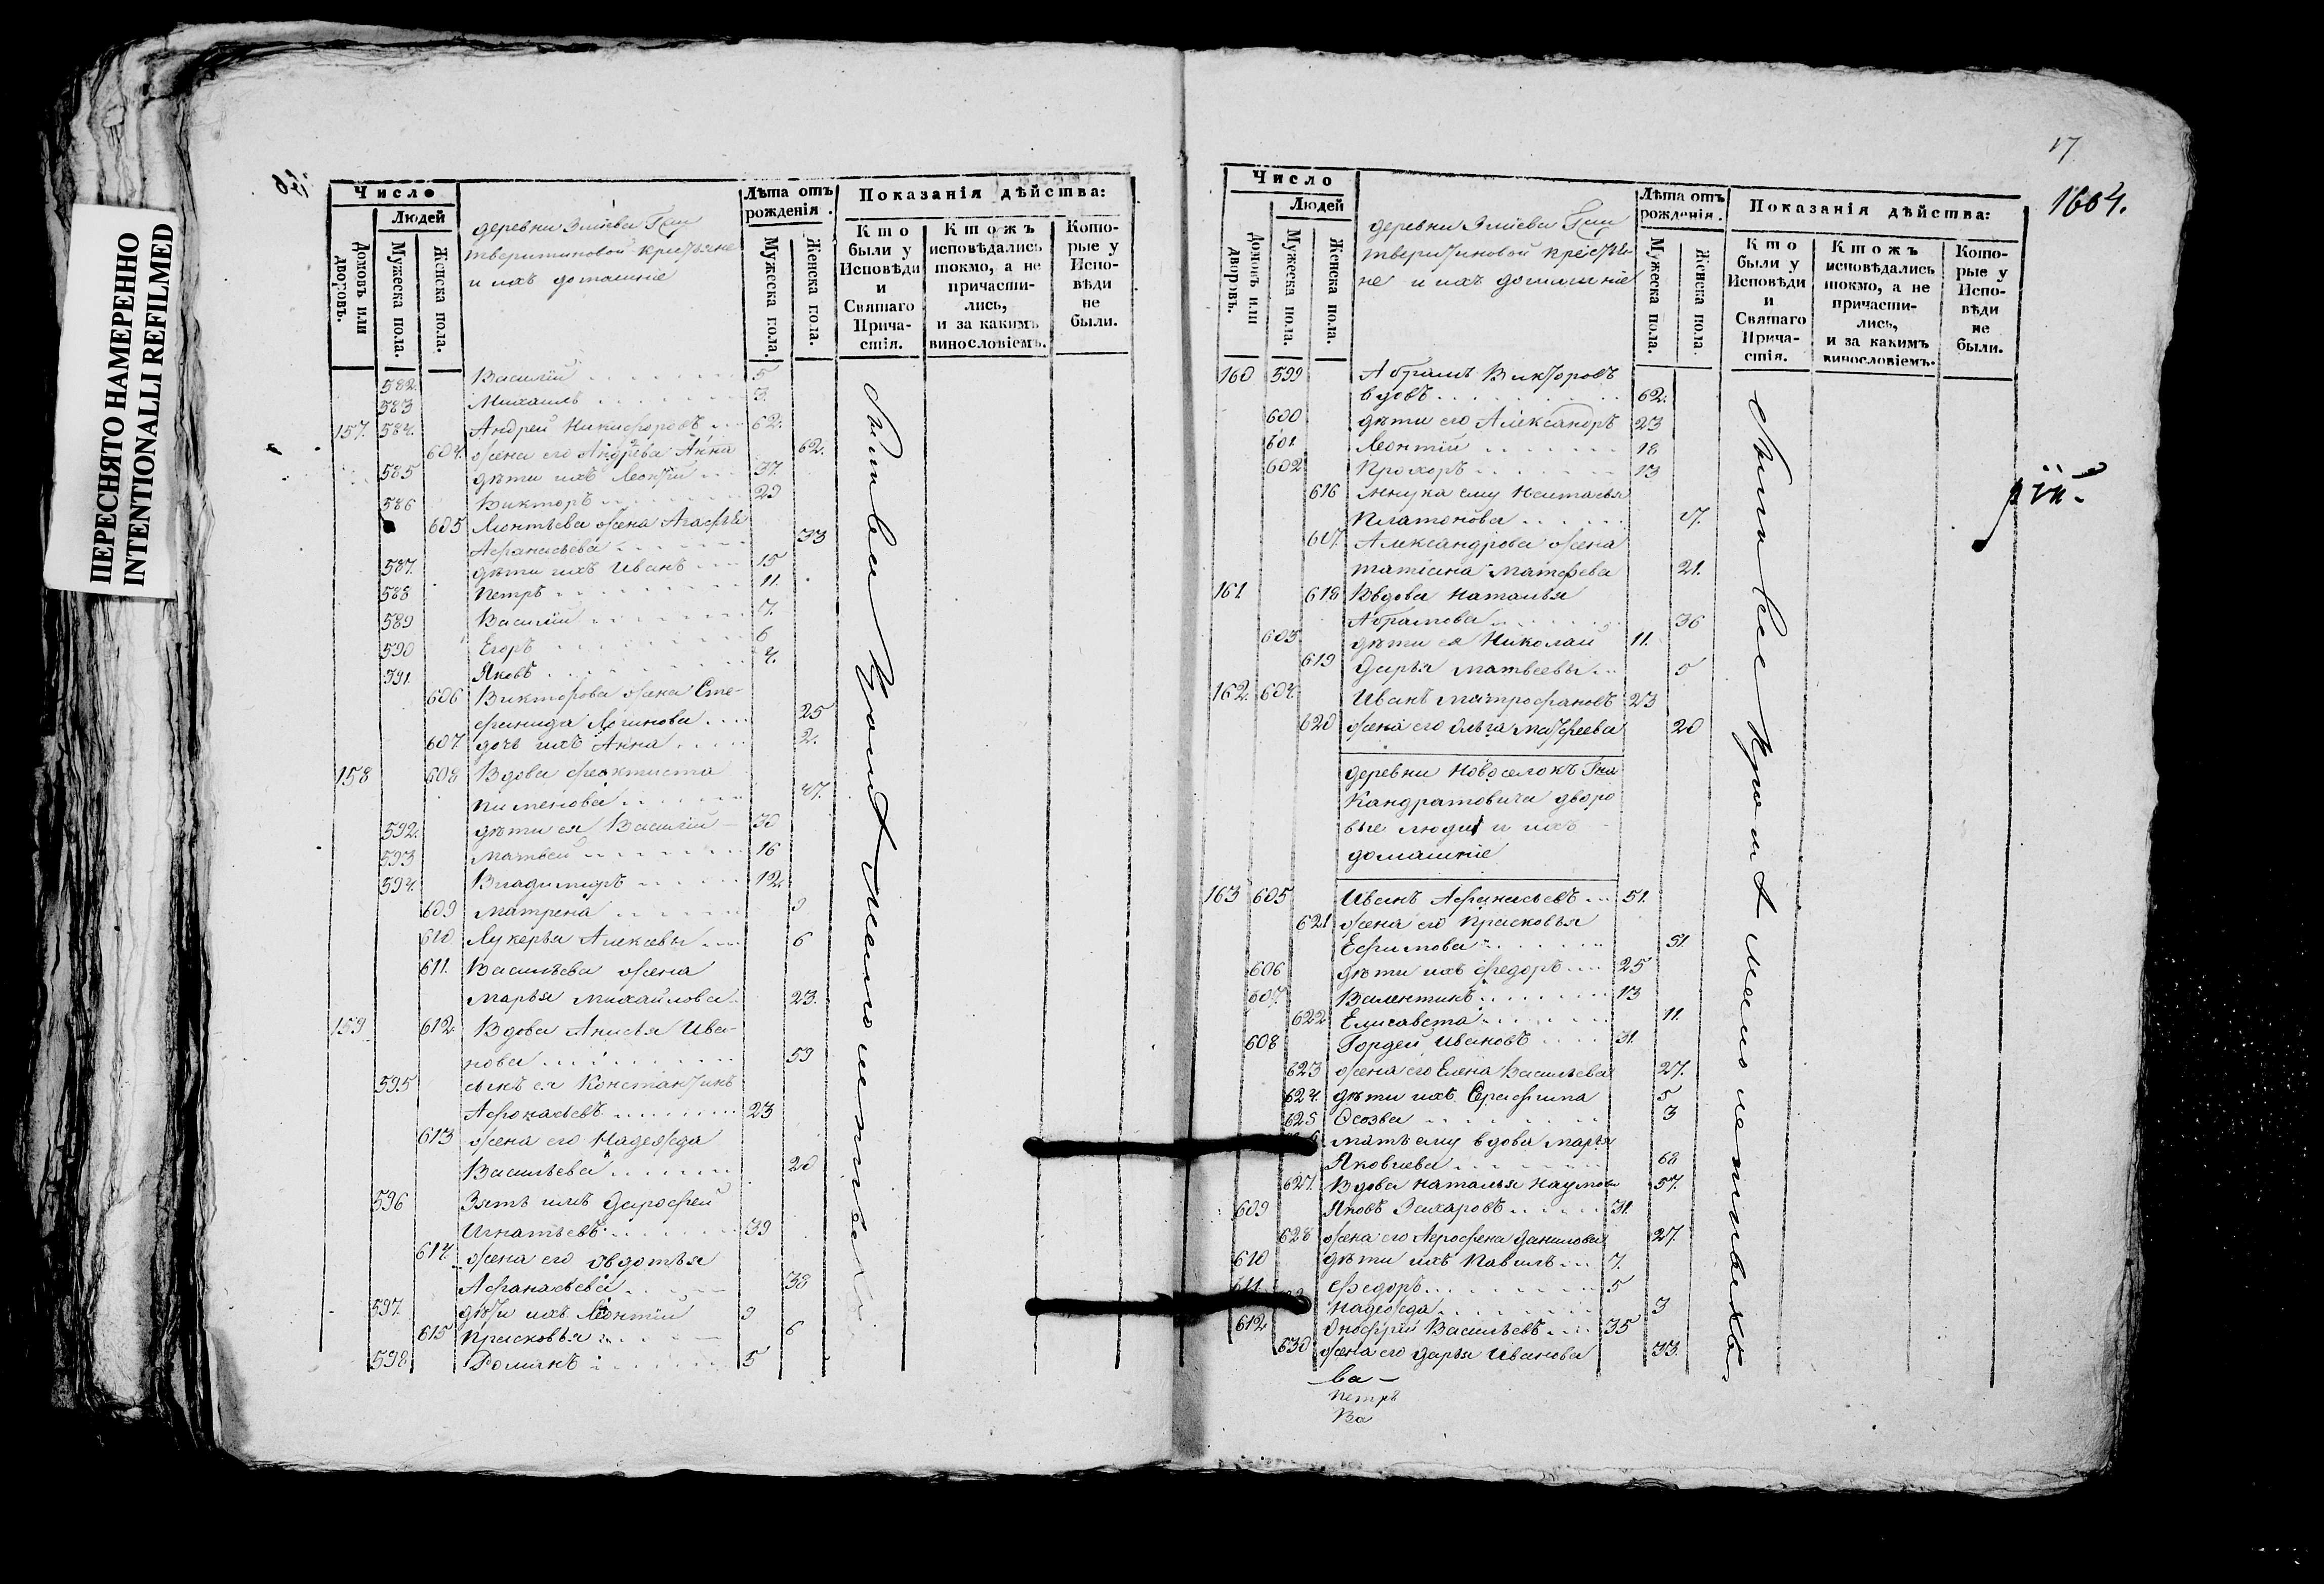 ПЕРЕСНЯТО НАМЕРЕННО
INTENTIONALLI REFILMED
Число
Людей
Домовъ или дворовъ.
Мужеска пола.
Женска пола.
деревни
Тверитиновой крестьяне
и ихъ домашніе
Лѣта отъ рожденія.
Мужеска пола.
Женска пола.
Показанія дѣйства:
Кто были у Исповѣди и Святаго Причастія.
Ктожъ исповѣдались токмо, а не причастились, и за какимъ винословіемъ.
Которые у Исповѣди не были.
582 Василій 5
583 Михаилъ 3
157. 584. Андрей Никифоровъ 62.
604. жена его Андрева Анна 62.
585 дѣти ихъ Леонтій 37.
586 Викторъ 29
605 Леонтьева жена Агафья
Афанасьева 33
587. дѣти ихъ Иванъ 15
588 Петръ 11.
589 Василій 7.
590 Егоръ 6
591. Яковъ 4.
606 Викторова жена Сте-
фанида Логинова 25
607. дочь ихъ Анна 2.
158 608 Вдова Феоктиста
Пименова 47.
592. дѣти ея Василій 30
593 Матвей 16
594. Владимиръ 12.
609 Матрена 9
610 Лукерья Алексевы 6
611. Васильева жена
Марья Михайлова 23.
159 612. Вдова Анисья Ива-
нова 59
595 сынъ ея Константинъ
Афонасьевъ 23
613 жена его Надежда
Васильева 20
596 Зять имъ Дорофей
Игнатьевъ 39
614. жена его Овдотья
Афанасьева 38
597. дѣти ихъ Леонтій 9
615 Прасковья 6
598 Романъ 5
17
1664.
Число
Людей
Домовъ или дворовъ.
Мужеска пола.
Женска пола.
деревни
Тверитиновой крестья-
не и ихъ домашніе
Лѣта отъ рожденія.
Мужеска пола.
Женска пола.
Показанія дѣйства:
Кто были у Исповѣди и Святаго Причастія.
Ктожъ исповѣдались токмо, а не причастились, и за какимъ винословіемъ.
Которые у Исповѣди не были.
160 599 Абрамъ Викторовъ
вдовъ 62.
600 дѣти его Александръ 23
601. Леонтій 18
602 Прохоръ 13
616 внука ему Настасья
Платонова 7.
617. Александрова жена
Татіана Матфева 21.
161. 618 Вдова Наталья
Абрамова 36
603 дѣти ея Николай 11.
619 Дарья Матвеевы 5
162. 604. Иванъ Митрофановъ 23
620 жена его Ольга Матфеева 20
деревни Новоселокъ
Кандратовича дворо
вые люди и ихъ
домашніе
163 605 Иванъ Афанасьевъ 51.
621 жена его Прасковья
Ефимова 51
606 дѣти ихъ Федоръ 25
607. Валентинъ 13
622 Елисавета 11.
608 Гордей Ивановъ 31.
623 жена его Елена Васильева 27.
624. дѣти ихъ Серафима 5
625 3
мать ему вдова Марья
Яковлева 68
627. Вдова Наталья Наумова 57.
609 Яковъ Захаровъ 31.
628 жена его Аграфена Данилова 27.
610 дѣти ихъ Павилъ 7.
611 Федоръ 5
Надежда 3
612 Онофрій Васильевъ 35
630 жена его Дарья Иванова 33.
Ва
Петръ
Ва